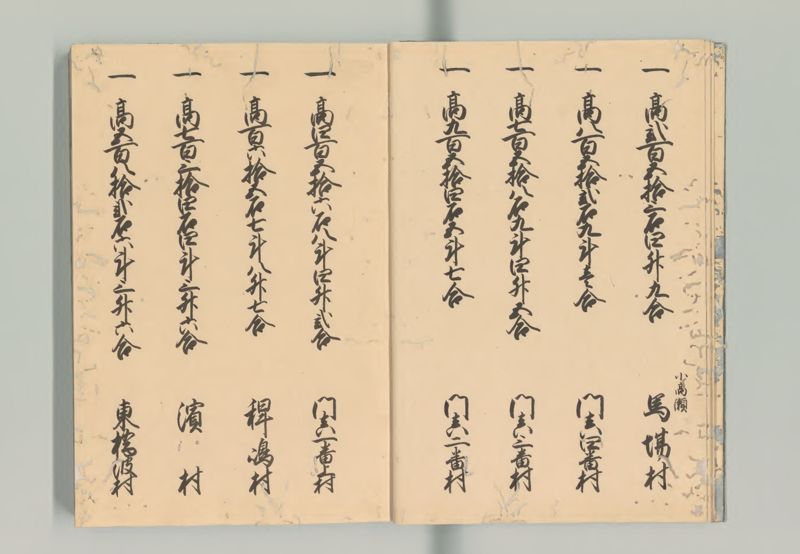 一 高弐百五拾三石四升九合
小高瀬
馬場村
一 高八百五拾弐石九斗壱合
門真四番村
一 高七百五拾八石九斗四升五合
門真三番村
一 高九百五拾四石五斗七合
門真二番村
一 高四百五拾六石八斗四升弐合
門真一番上村
一 高百六拾五石七斗八升七合
稗嶋村
一 高七百三拾四石四斗三升六合
濱村
一 高五百八拾弐石六斗三升六合
東橋波村